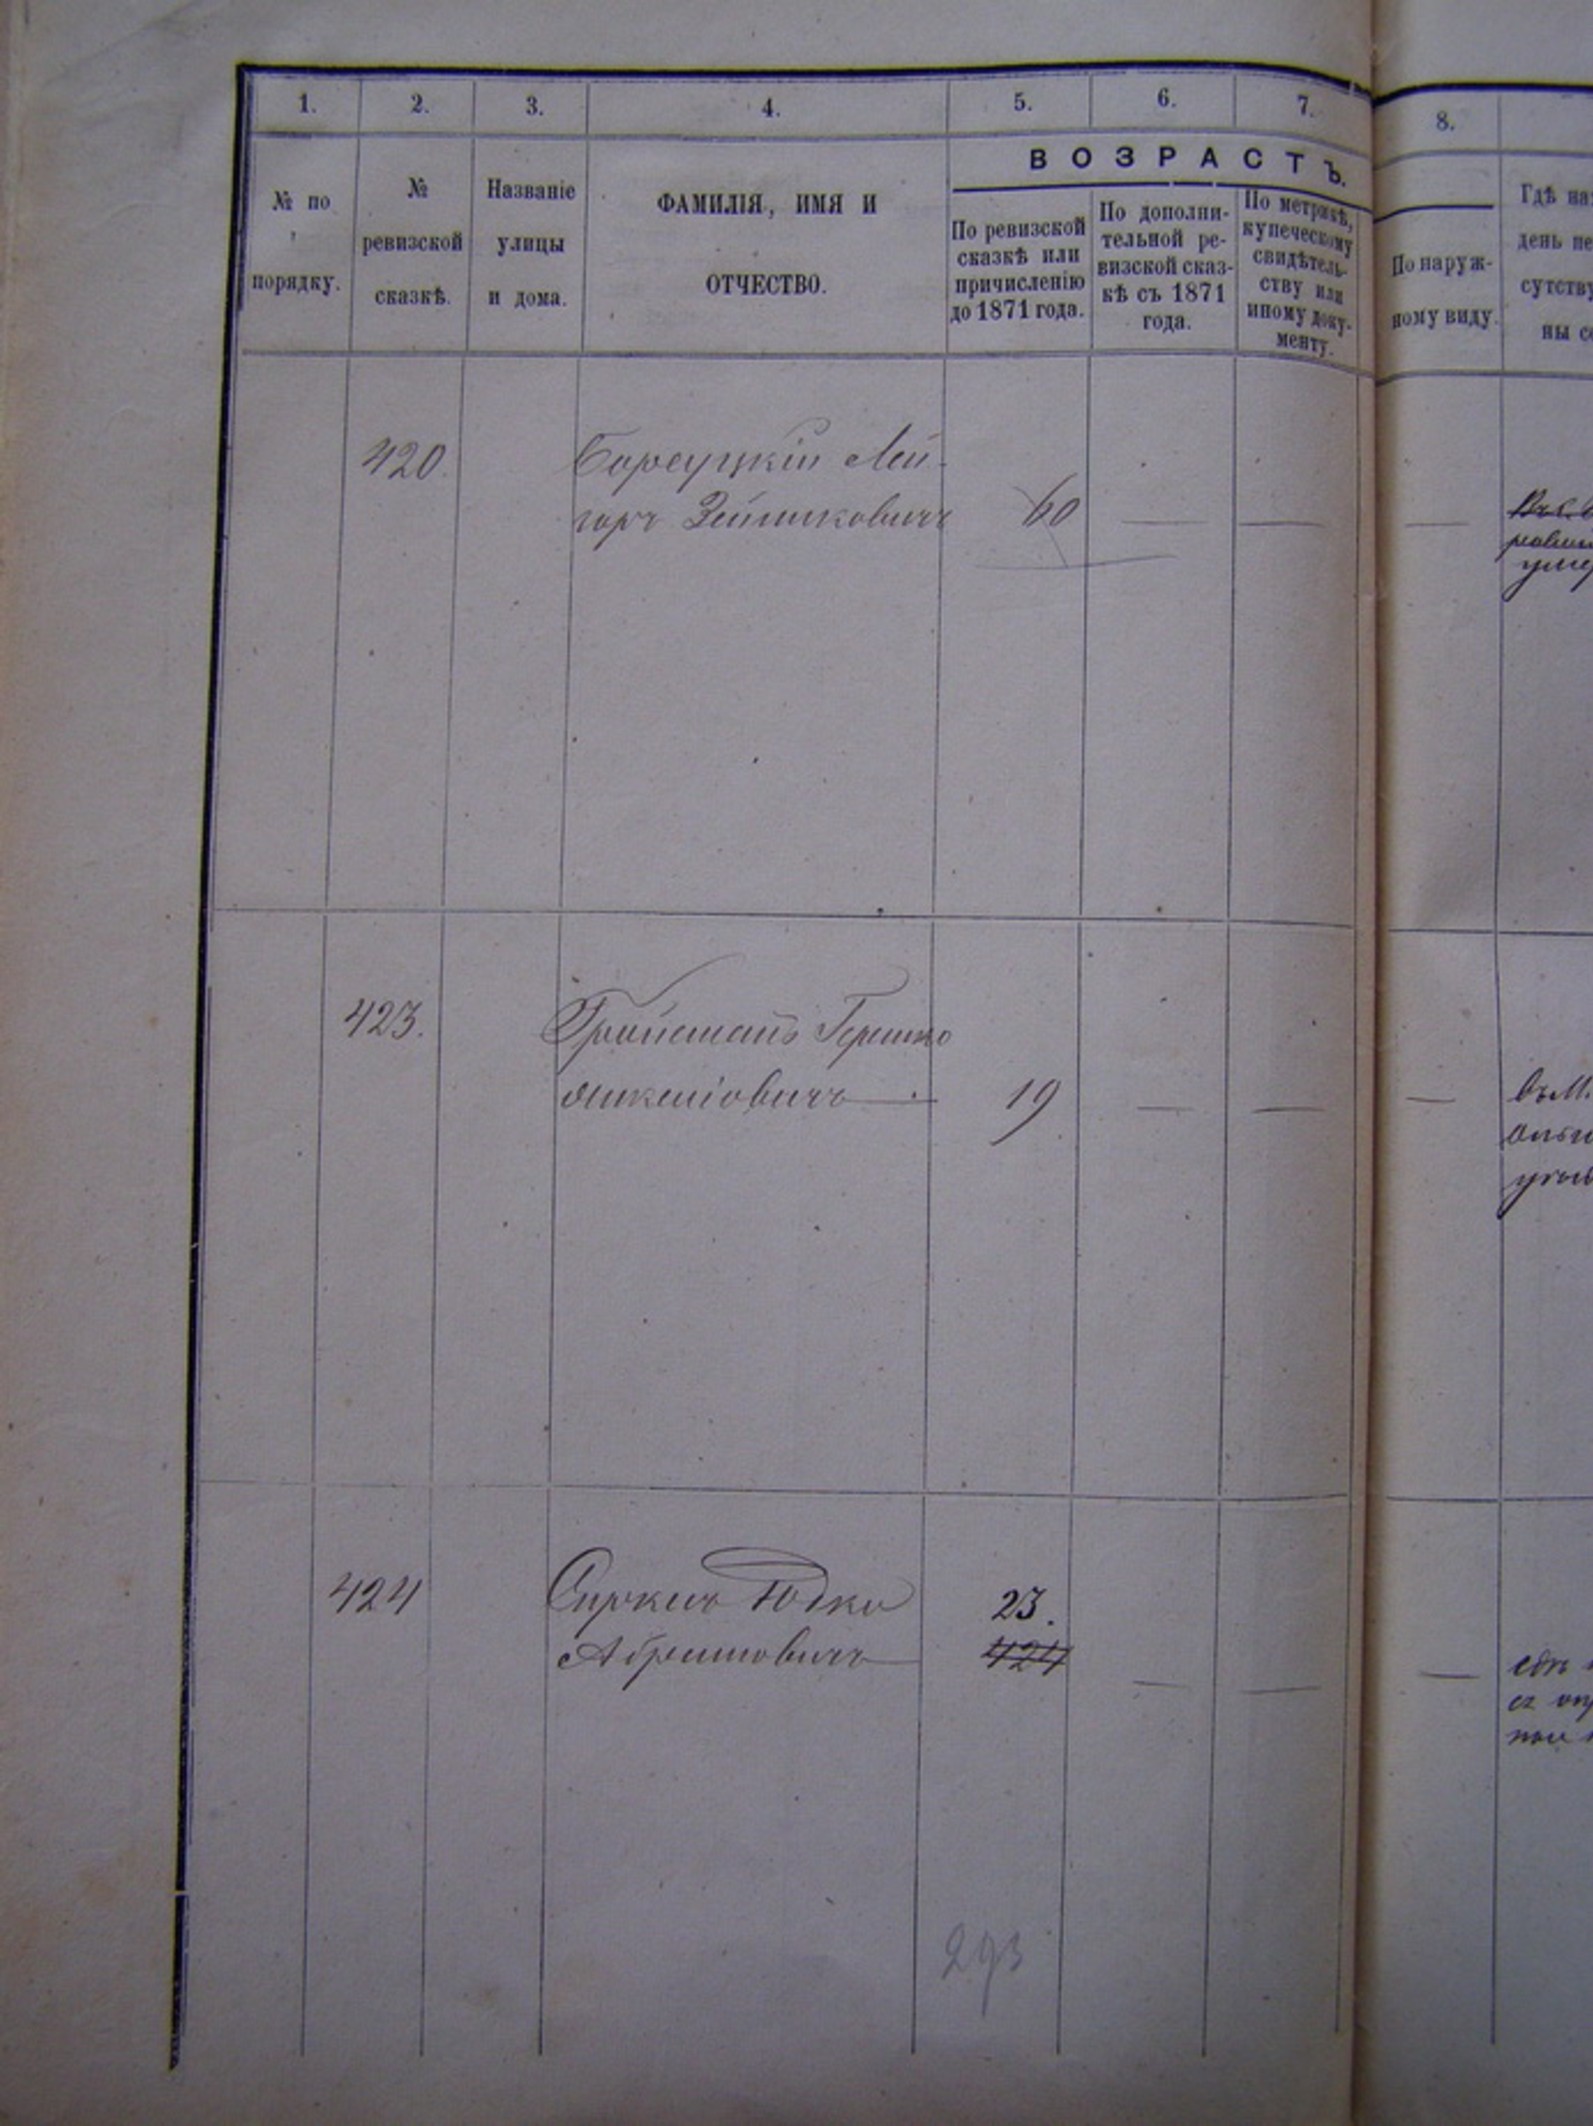 1. 2. 3. 4. 5. 6. 7. 8.
ВОЗРАСТЪ.
№ по
порядку.
№
ревизской
сказкѣ.
Названіе
улицы
и дома.
ФАМИЛІЯ, ИМЯ И
ОТЧЕСТВО.
По ревизской
сказкѣ или
причисленію
до 1871 года.
По дополни-
тельной ре-
визской сказ-
кѣ съ 1871
года.
По метрикѣ,
купеческому
свидѣтель-
ству или
иному доку-
менту.
По наруж-
ному виду.
Гдѣ на
день не
сутству
ны с
420. Лей-
60
423. Гершко
19
424 Юдко 23.
Абрамовичъ 424
293